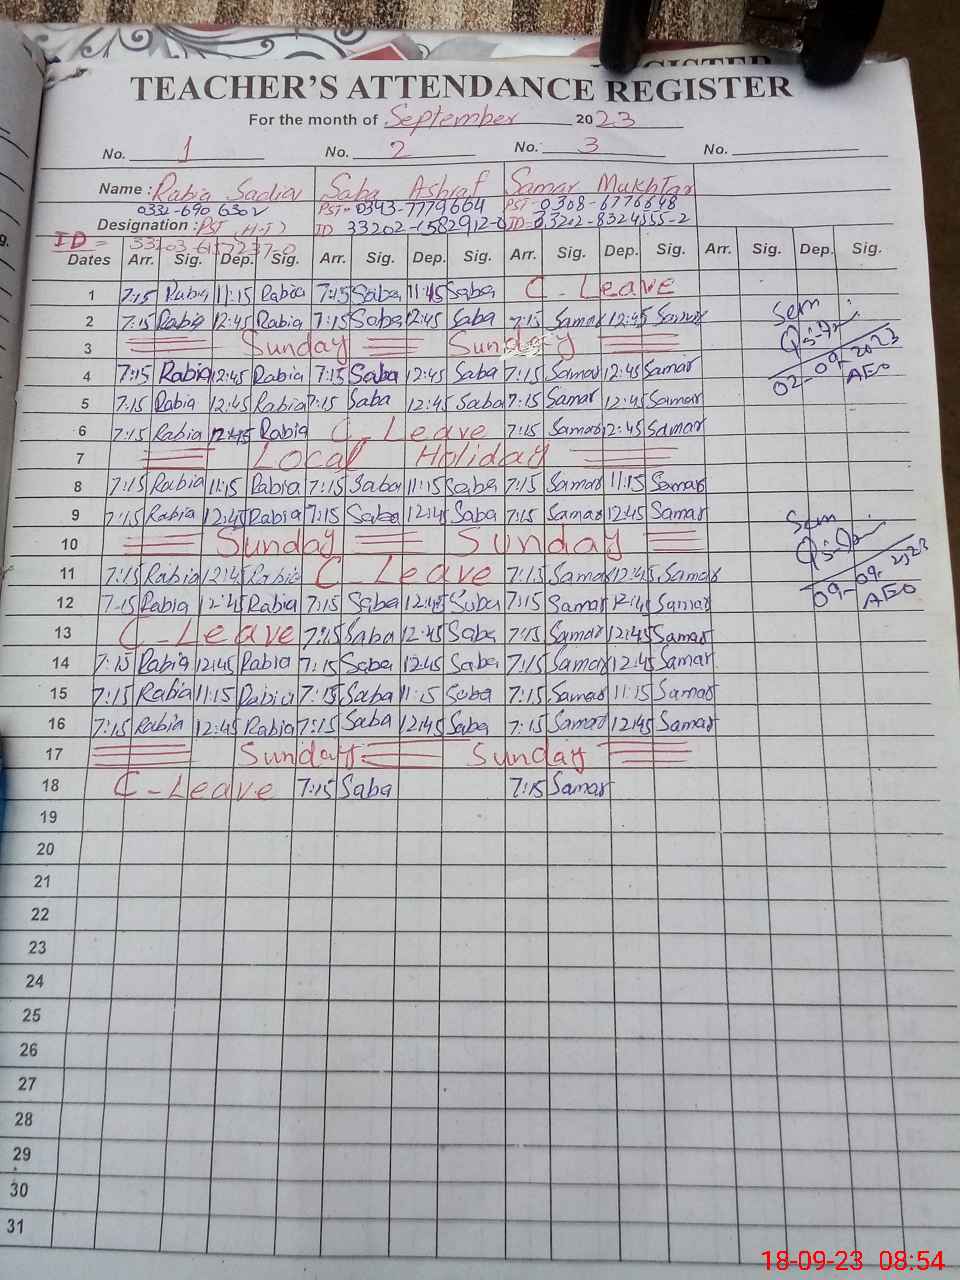 REGISTER
TEACHER'S ATTENDANCE REGISTER
For the month of September 2023
No. 1 No. 2 No. 3 No.
Name : Rabia Sadia Saba Ashraf Samar Mukhtar
0332-690 6302 PST- 0343-7779664 PST- 0308-6776648
Designation : PST (H.T) ID 33202-1582912-0 ID= 33202-8324555-2
ID =
Dates Arr. Sig. Dep. Sig. Arr. Sig. Dep. Sig. Arr. Sig. Dep. Sig. Arr. Sig. Dep. Sig.
1 7:15 Rabia 11:15 Rabia 7:15 Saba 11:45 Saba C - Leave
2 7:15 Rabia 12:45 Rabia 7:15 Saba 12:45 Saba 7:15 Samar 12:45 Samar
3 Sunday Sunday
4 7:15 Rabia 12:45 Rabia 7:15 Saba 12:45 Saba 7:15 Samar 12:45 Samar
02-09-2023
AEO
5 7:15 Rabia 12:45 Rabia 7:15 Saba 12:45 Saba 7:15 Samar 12:45 Samar
6 7:15 Rabia 12:45 Rabia C - Leave 7:15 Samar 12:45 Samar
7 Local Holiday
8 7:15 Rabia 11:15 Rabia 7:15 Saba 11:15 Saba 7:15 Samar 11:15 Samar
9 7:15 Rabia 12:45 Rabia 7:15 Saba 12:45 Saba 7:15 Samar 12:45 Samar
10 Sunday Sunday
11 7:15 Rabia 12:45 Rabia C - Leave 7:15 Samar 12:45 Samar
09-09-2023
AEO
12 7:15 Rabia 12:45 Rabia 7:15 Saba 12:45 Saba 7:15 Samar 12:45 Samar
13 C - Leave 7:15 Saba 12:45 Saba 7:15 Samar 12:45 Samar
14 7:15 Rabia 12:45 Rabia 7:15 Saba 12:45 Saba 7:15 Samar 12:45 Samar
15 7:15 Rabia 11:15 Rabia 7:15 Saba 11:15 Saba 7:15 Samar 11:15 Samar
16 7:15 Rabia 12:45 Rabia 7:15 Saba 12:45 Saba 7:15 Samar 12:45 Samar
17 Sunday Sunday
18 C - Leave 7:15 Saba 7:15 Samar
19
20
21
22
23
24
25
26
27
28
29
30
31
18-09-23 08:54